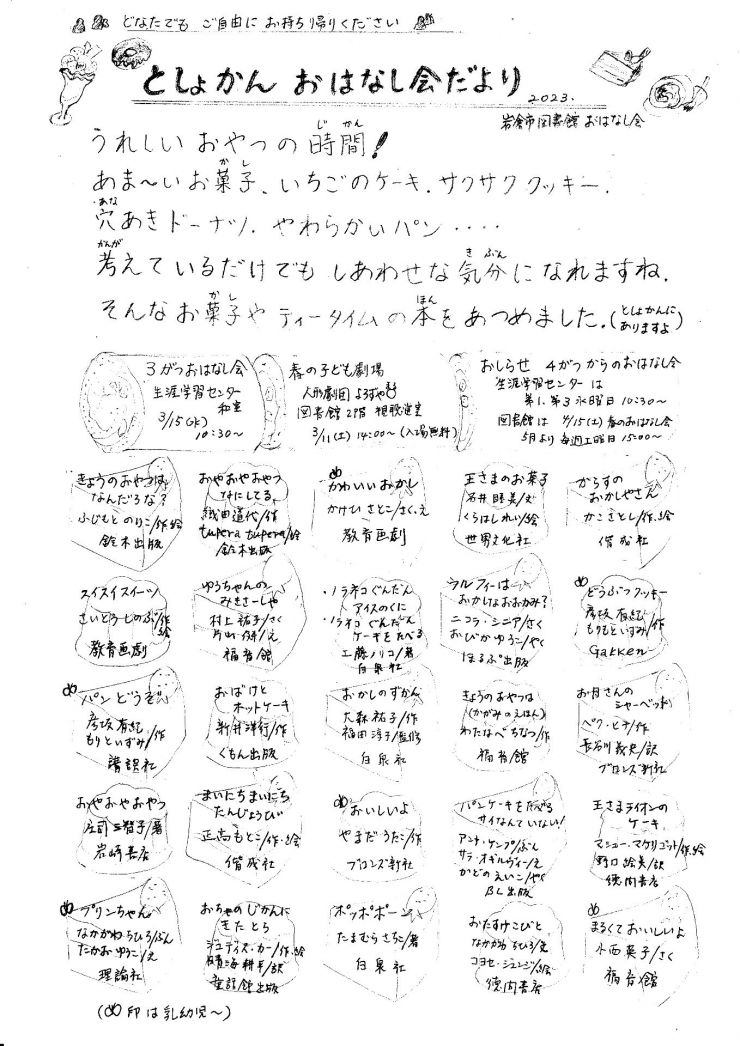 どなたでも ご自由に お持ち帰りください
としょかん おはなし会だより
2023.
岩倉市図書館 おはなし会
うれしい おやつの 時間!
じかん
あま〜い お菓子、いちごのケーキ、サクサククッキー、
かし
穴あきドーナツ、やわらかいパン・・・・
あな
考えているだけでも しあわせな 気分になれますね。
かんが きぶん
そんな お菓子や ティータイムの 本を あつめました。(としょかんに ありますよ)
かし ほん
3がつおはなし会
生涯学習センター
和室
3/15(水)
10:30〜
春の子ども劇場
人形劇団 よろずや
図書館 2階 視聴覚室
3/11(土) 14:00〜(入場無料)
おしらせ 4がつからのおはなし会
生涯学習センター は
第1、第3 水曜日 10:30〜
図書館は 4/15(土) 春のおはなし会
5月より 毎週土曜日 15:00〜
きょうのおやつは
なんだろな?
ふじもと のりこ/作・絵
鈴木出版
おやおやおやつ
なにしてる
織田道代/作
tupera tupera/絵
鈴木出版
め
かわいいおかし
かけひ さとこ/さく、え
教育画劇
王さまのお菓子
石井睦美/文
くらはしれい/絵
世界文化社
からすの
おかしやさん
かこさとし/作・絵
偕成社
スイスイスイーツ
さいとうしのぶ/作・絵
教育画劇
ゆうちゃんの
みきさーしゃ
村上祐子/さく
片山健/え
福音館
・ノラネコぐんだん
アイスのくに
・ノラネコぐんだん
ケーキをたべる
工藤ノリコ/著
白泉社
ラルフィーは
おかしなおおかみ?
ニコラ・シニア/さく
おびか ゆうこ/やく
ほるぷ出版
め
どうぶつクッキー
彦坂有紀
もりといずみ/作
Gakken
め
パン どうぞ
彦坂有紀
もりといずみ/作
講談社
おばけと
ホットケーキ
新井洋行/作
くもん出版
おかしのずかん
大森裕子/作
福田淳子/監修
白泉社
きょうのおやつは
(かがみのえほん)
わたなべちなつ/作
福音館
お月さんの
シャーベット
ペク・ヒナ/作
長谷川義史/訳
ブロンズ新社
おやおやおやつ
庄司三智子/著
岩崎書店
まいにちまいにち
たんじょうび
正高もとこ/作・絵
偕成社
め
おいしいよ
やまだ うたこ/作
ブロンズ新社
パンケーキをたべる
サイなんていない!
アンナ・ケンプ/ぶん
サラ・オギルヴィー/え
かどの えいこ/やく
BL出版
王さまライオンの
ケーキ
マシュー・マケリゴット/作・絵
野口絵美/訳
徳間書店
め
プリンちゃん
なかがわちひろ/ぶん
たかおゆうこ/え
理論社
おちゃのじかんに
きたとら
ジュディス・カー/作・絵
晴海耕平/訳
童話館出版
ポッポポーン
たまむらさちこ/著
白泉社
おたすけこびと
なかがわちひろ/文
コヨセ・ジュンジ/絵
徳間書店
め
まるくておいしいよ
小西英子/さく
福音館
(め印は乳幼児〜)